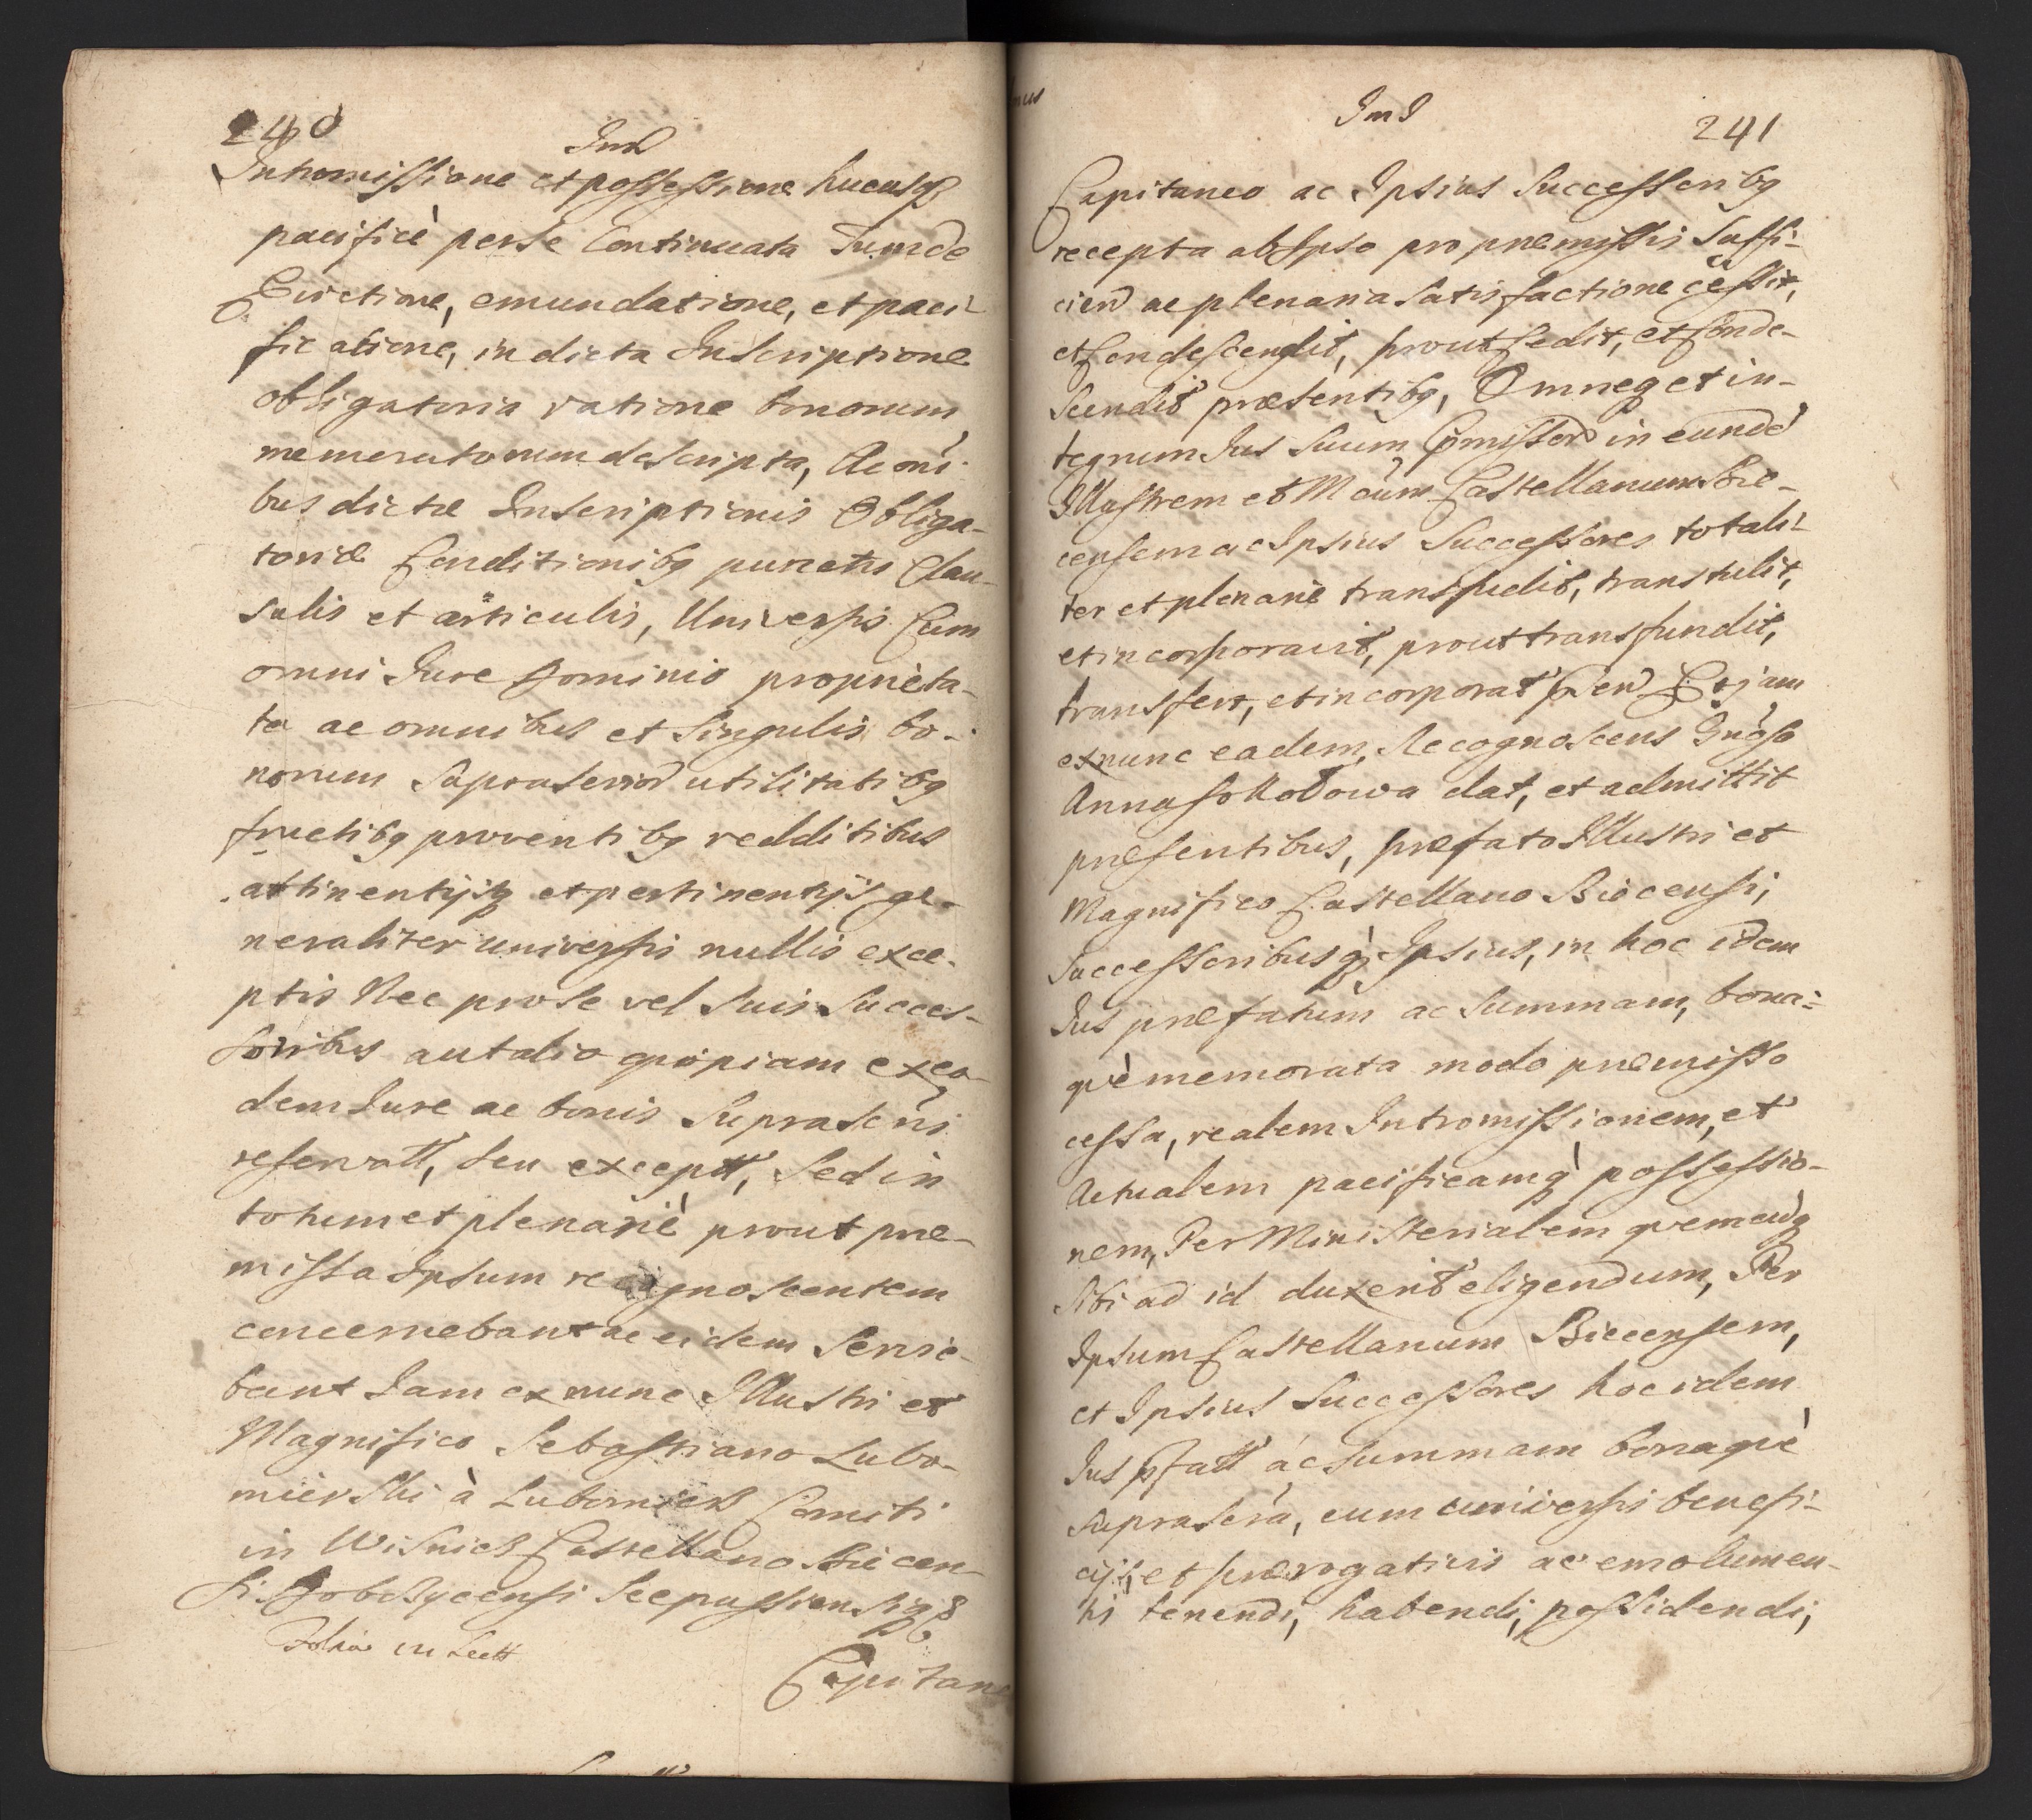 240
Ind
Intromissione et possessione hucusq
pacificè per se Continuata Tum de
Evictione, emundatione, et paci-
ficatione, in dicta Inscriptione
obligatoria ratione bonorum
memoratorum descripta, Ac oni-
bus dictæ Inscriptionis Obliga-
toriæ Conditionibg punctis Clau-
sulis et articulis, Universis Cum
omni Jure Dominio proprieta-
te ac omnibus et singulis bo-
norum suprascrior utilitatibg
fructibg proventibg redditibus
attinentijsq et pertinentijs ge-
neraliter universis nullis exce-
ptis Nec pro se vel suis succes-
soribus aut alio qpiam ex eo-
dem Jure ac bonis supra scris
reservatt, seu exceptt, sed in
totum et plenariè prout præ-
missa Ipsum recognoscentem
concernebant ac eidem servie-
bant Jam ex nunc Illustri et
Magnifico Sebastiano Lubo-
mierski à Lubomierz Comiti
in Wisnicz Castellano Biecen-
si Dobczycensi Scepusiensiq
Capitane
241
Capitaneo ac Ipsius Successoribg
recepta ab Ipso pro præmissis suffi-
cien ac plenaria satisfactione cessit,
et Condescendit, prout Cedit, et Conde-
scendit præsentibg, Omneq et in-
tegrum Jus suum in eunde
Illustrem et Mcum Castellanum Bie-
censem ac Ipsius Successores totali-
ter et plenariè transfudit, transtulit,
et incorporavit, prout transfundit,
transfert, et incorporat pen Et jam
ex nunc eadem, Recognoscens Gnosa
Anna sokolowa dat, et admittit
præsentibus, præfato Illustri et
Magnifico Castellano Biecensi,
successoribusq Ipsius, in hoc idem
Jus præfatum ac summam, bona-
què memorata modo præmisso
cessa, realem Intromissionem, et
Actualem pacificamq possessio-
nem, Per Ministerialem quemcuq
sibi ad id duxerit eligendum, Per
Ipsum Castellanum Biecensem,
et Ipsius Successores hoc idem
Jus pfatt ac summam bonaquè
suprascra, cum universis benefi-
cijs, et prærogativis ac emolumen-
tis tenendi, habendi, possidendi,